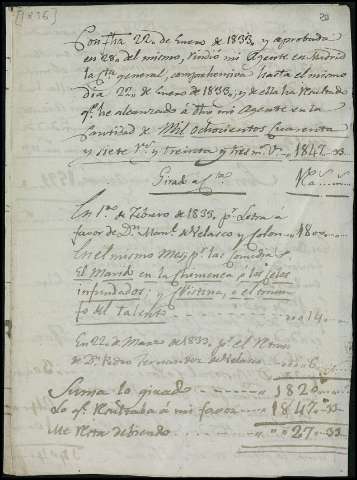 [1836]
20
Con fha 22,, de Enero de 1833,, y aprobada
en 28,, del mismo, rindió mi Agente en Madrid
la Cta general, comprehensiva hasta el mismo
dia 22,, de Enero de 1833,, y de ella ha resultado
qe he alcanzado á dho mi Agente en la
Cantidad de Mil ochocientos Cuarenta
y siete rs y treinta y tres ms Vn ,, 1847,,33
Girado á
En 1ro de Febrero de 1833, pr Letra á
favor de Dn Manl de Velasco y Colon ,, 1800,,
En el mismo Mes, pr las Comedias
El Marido en la Chimenea ó los Celos
infundados; y Cristina, ó el triunfo
del talento 14
En 22,, de Marzo de 1833, pr el
de Dn Pedro Fernandez de Velasco 6
Suma lo girado 1820
Lo qe Resultaba á mi favor 1847,,33
Me Resta debiendo 27,,33